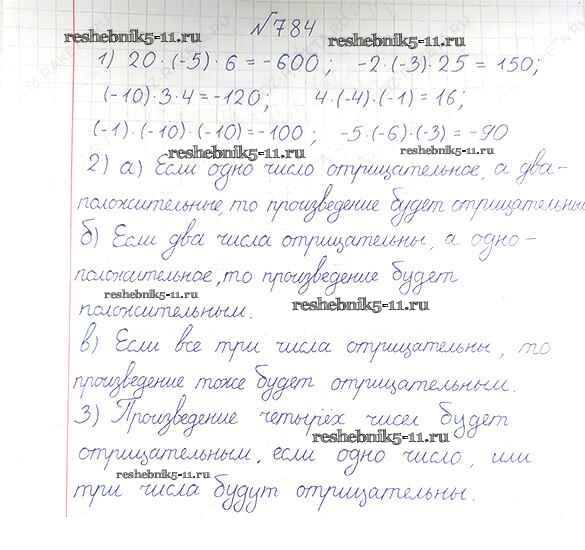 №784
reshebnik5-11.ru reshebnik5-11.ru
1) 20·(-5)·6=-600; -2·(-3)·25=150;
(-10)·3·4=-120; 4·(-4)·(-1)=16;
(-1)·(-10)·(-10)=-100; -5·(-6)·(-3)=-90
reshebnik5-11.ru reshebnik5-11.ru
2) а) Если одно число отрицательное, а два-
положительные, то произведение будет отрицательны
б) Если два числа отрицательны, а одно-
положительное, то произведение будет
reshebnik5-11.ru reshebnik5-11.ru
положительным.
в) Если все три числа отрицательны, то
произведение тоже будет отрицательным.
3) Произведение четырёх чисел будет
reshebnik5-11.ru
отрицательным, если одно число, или
reshebnik5-11.ru
три числа будут отрицательны.